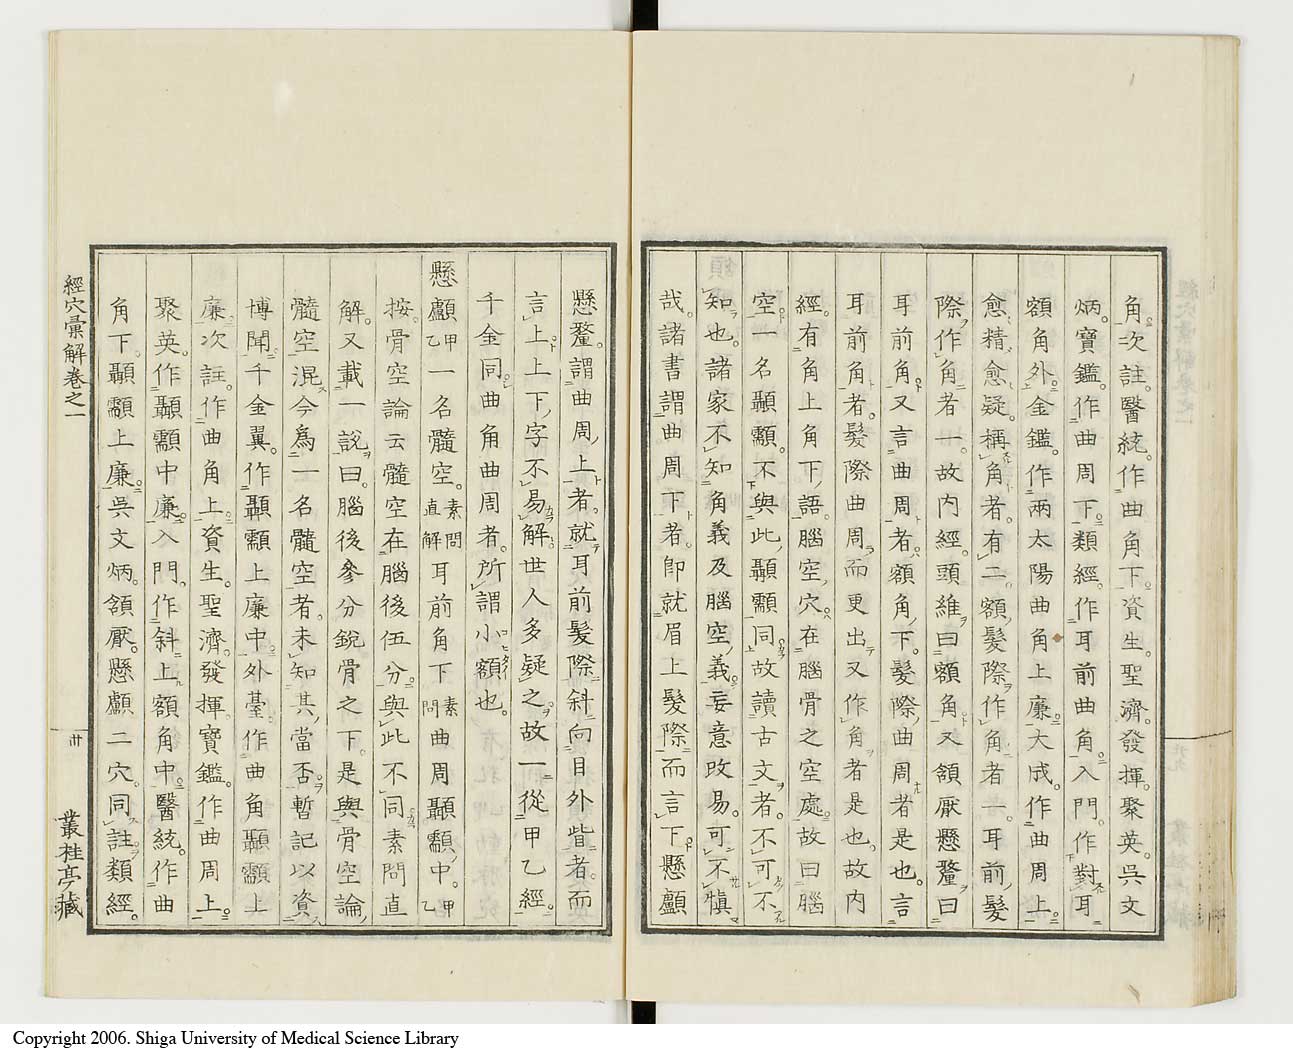 角次註醫統作曲角下資生聖濟發揮聚英吳文
炳寶鑑作曲周下類經作耳前曲角入門作對耳
額角外金鑑作兩太陽曲角上廉大成作曲周上
愈精愈疑稱角者有二額髮際作角者一耳前髮
際作角者一故内經頭維曰額角又頷厭懸釐曰
耳前角又言曲周者額角下髮際曲周者是也言
耳前角者髮際曲周而更出又作角者是也故内
經有角上角下語腦空穴在腦骨之空處故曰腦
空一名顳顬不與此顳顬同故讀古文者不可不
知也諸家不知角義及腦空義妄意改易可不愼
哉諸書謂曲周下者卽就眉上髮際而言下懸顱
懸釐謂曲周上者就耳前髮際斜向目外眥者而
言上上下字不易解世人多疑之故一從甲乙經
千金同曲角曲周者所謂小額也
懸顱甲乙一名髓空素問直解耳前角下素問曲周顳顬中甲乙
按骨空論云髓空在腦後伍分與此不同素問直
解又載一說曰腦後參分銳骨之下是與骨空論
髓空混今爲一名髓空者未知其當否暫記以資
博聞千金翼作顳顬上廉中外臺作曲角顳顬上
廉次註作曲角上資生聖濟發揮寶鑑作曲周上
聚英作顳顬中廉入門作斜上額角中醫統作曲
角下顳顬上廉吳文炳頷厭懸顱二穴同註類經
經穴彙解卷之一
卅
叢桂亭藏
Copyright 2006. Shiga University of Medical Science Library